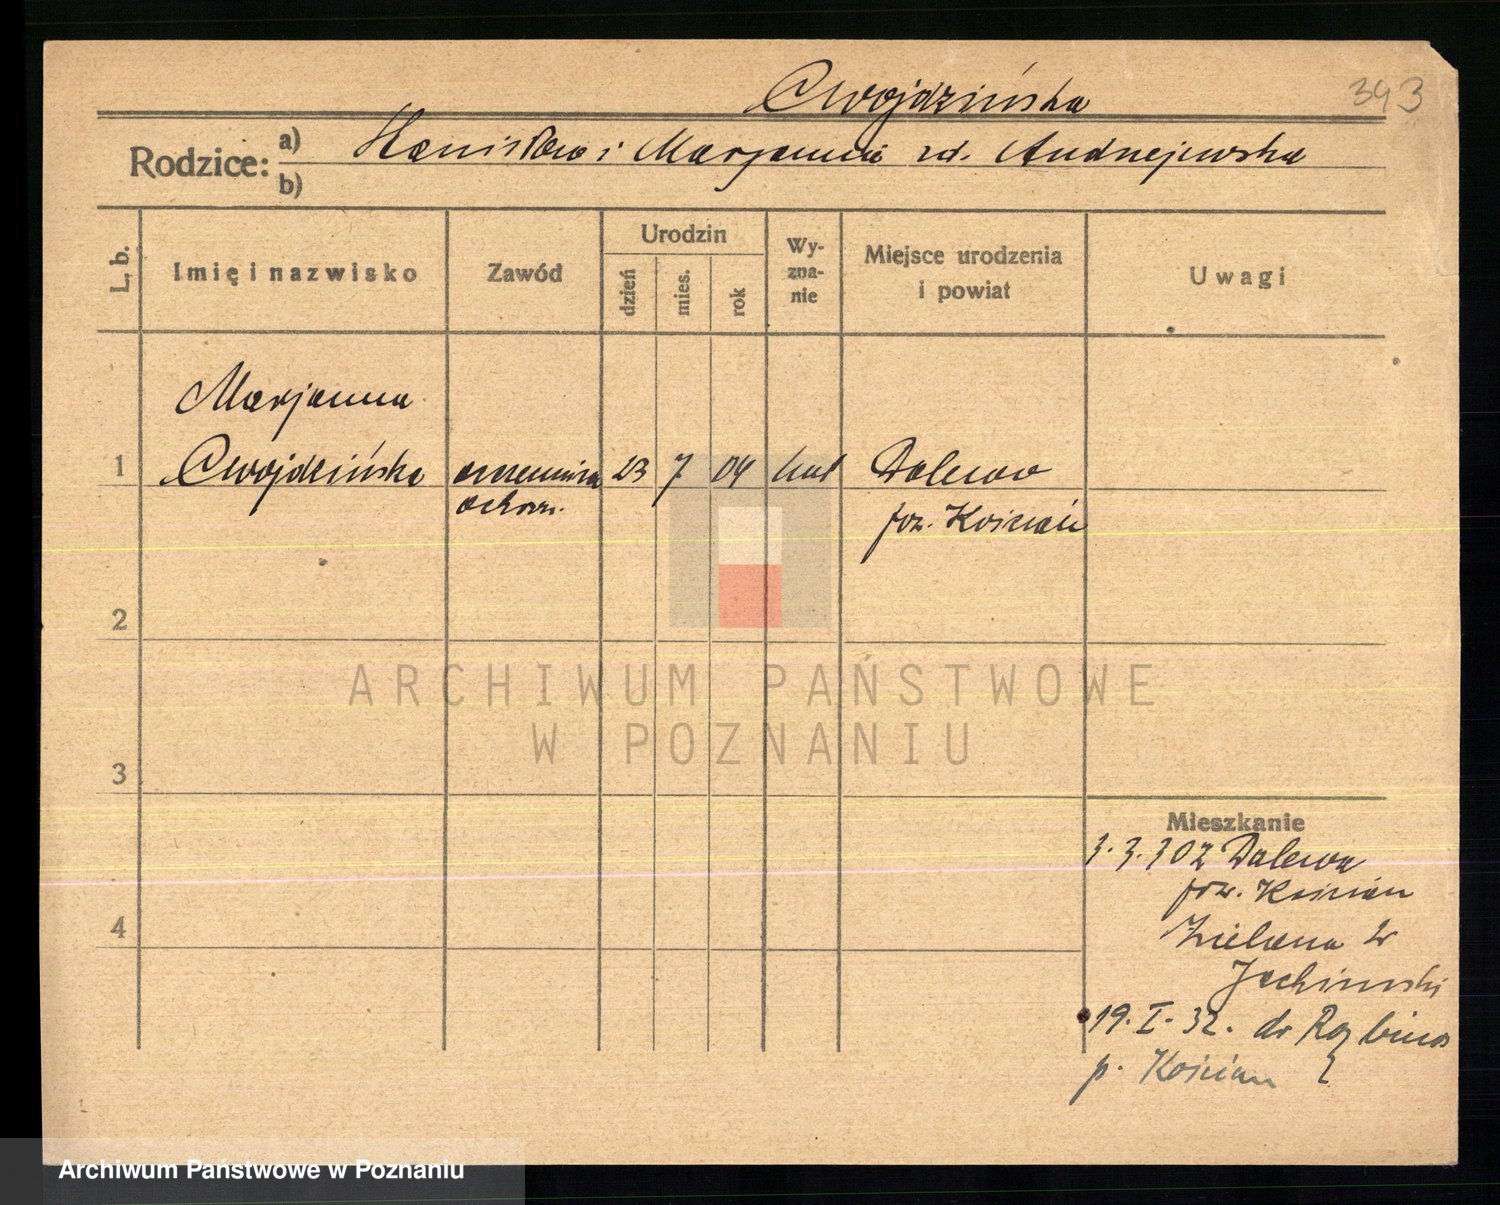 393
Cwojdzińska
Rodzice: a) Stanisław i Marjanna zd. Andrzejewska
b)
L. b.
Imię i nazwisko
Zawód
Urodzin
dzień
mies.
rok
Wy-
zna-
nie
Miejsce urodzenia
i powiat
Uwagi
Marjanna
1 Cwojdzińska uczennica 23 7 04 kat Dalewo
ochron. pow. Kościan
2
3
4
Mieszkanie
3.3.30 z Dalewa
pow. Kościan
Zielona 2
19.I.32. do
p. Kościan
ARCHIWUM PAŃSTWOWE
W POZNANIU
Archiwum Państwowe w Poznaniu